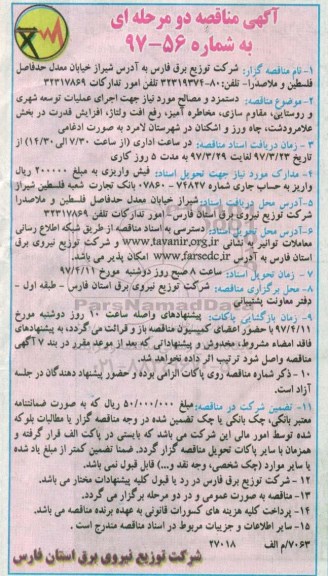 آگهی مناقصه دو مرحله ای
به شماره ۵۶-۹۷
۱- نام مناقصه گزار: شرکت توزیع برق فارس به آدرس شیراز خیابان معدل حدفاصل
فلسطین و ملاصدرا- تلفن: ۸۰-۳۲۳۱۹۳۷۴ تلفن امور تدارکات ۳۲۳۱۷۸۶۹
۲- موضوع مناقصه: دستمزد و مصالح مورد نیاز جهت اجرای عملیات توسعه شهری
و روستایی، مقاوم سازی، مخاطره آمیز، رفع افت ولتاژ، افزایش قدرت در بخش
علامرودشت، چاه ورز و اشکنان در شهرستان لامرد به صورت ادغامی
۳- زمان دریافت اسناد مناقصه: در ساعت اداری (از ساعت ۷/۳۰ الی ۱۴/۳۰) از
تاریخ ۹۷/۳/۲۳ لغایت ۹۷/۳/۲۹ به مدت ۵ روز کاری
۴- مدارک مورد نیاز جهت تحویل اسناد: فیش واریزی به مبلغ ۲۰۰۰۰۰ ریال
واریز به حساب جاری شماره ۷۴۸۲۷-۰۷۸۶۰ بانک تجارت شعبه فلسطین شیراز
۵- آدرس محل دریافت اسناد: شیراز خیابان معدل حدفاصل فلسطین و ملاصدرا
شرکت توزیع نیروی برق استان فارس- امور تدارکات تلفن ۳۲۳۱۷۸۶۹
۶- آدرس محل تحویل اسناد: دسترسی به اسناد مناقصه از طریق شبکه اطلاع رسانی
معاملات توانیر به نشانی www.tavanir.org.ir و شرکت توزیع نیروی برق
استان فارس به آدرس www.farsedc.ir امکان پذیر می باشد.
۷- زمان تحویل اسناد: ساعت ۸ صبح روز دوشنبه مورخ ۹۷/۴/۱۱
۸- محل برگزاری مناقصه: شرکت توزیع نیروی برق استان فارس - طبقه اول -
دفتر معاونت پشتیبانی
۹- زمان بازگشایی پاکات: پیشنهادهای واصله ساعت ۱۰ روز دوشنبه مورخ
۹۷/۴/۱۱ با حضور اعضای کمیسیون مناقصه باز و قرائت می گردد، به پیشنهادهای
فاقد امضاء مشروط، مخدوش و پیشنهاداتی که بعد از موعد مقرر در بند ۷ آگهی
مناقصه واصل شود ترتیب اثر داده نخواهد شد.
۱۰- ذکر شماره مناقصه روی پاکات الزامی بوده و حضور پیشنهاد دهندگان در جلسه
آزاد است.
۱۱- تضمین شرکت در مناقصه: مبلغ ۵۰/۰۰۰/۰۰۰ ریال که به صورت ضمانتنامه
معتبر بانکی، چک بانکی یا چک تضمین شده در وجه مناقصه گزار یا مطالبات بلوکه
شده توسط امور مالی این شرکت می باشد که بایستی در پاکت الف قرار گرفته و
همزمان با سایر پاکات تحویل مناقصه گزار گردد. ضمنا تضمین کمتر از مبلغ یاد شده
یا سایر موارد (چک شخصی، وجه نقد و...) قابل قبول نمی باشد.
۱۲- شرکت توزیع برق فارس در رد یا قبول کلیه پیشنهادات مختار می باشد.
۱۳- مناقصه به صورت عمومی و در دو مرحله برگزار می گردد.
۱۴- پرداخت کلیه هزینه های کسورات قانونی به عهده برنده مناقصه می باشد.
۱۵- سایر اطلاعات و جزییات مربوط در اسناد مناقصه مندرج است .
۷۰۶۳/م الف ۲۷۰۱۸
شرکت توزیع نیروی برق استان فارس